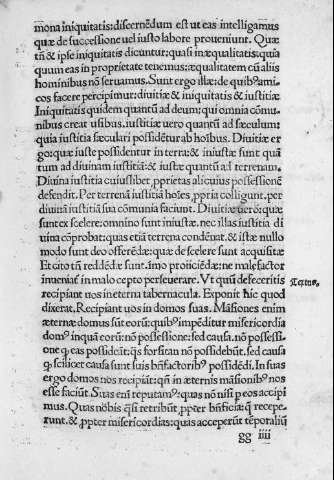 mona iniquitatis: discernēdum est ut eas intelligamus
quæ de successione uel iusto labore proueniunt. Quæ
tñ & ipse iniquitatis dicuntur: quasi inæqualitatis: quia
quum eas in proprietate tenemus: æqualitatem cū aliis
hominibus nō seruamus. Sunt ergo illæ: de quibꝰ ami
cos facere percipimur: diuitiæ & iniquitatis & iustitiæ
Iniquitatis quidem quantū ad deum: qui omnia cōmu
nibus creat usibus. iustitiæ uero quantū ad sæculum:
quia iustitia sæculari possidētur ab hoībus. Diuitiæ er
go: quæ iuste possidentur in terra: & iniustæ sunt quā
tum ad diuinam iustitiā: & iustæ quantū ad terrenam.
Diuina iustitia cuiuslibet ꝓprietatis alicuius possessionē
defendit. Per terrenā iustitiā hoīes ꝓpria colligunt. per
diuinā iustitiā sua cōmunia faciunt. Diuitiæ uero: quæ
sunt ex scelere: omnino sunt iniustæ. nec illas iustitia di
uina cōprobat: quas etiā terrena condēnat. & istæ nullo
modo sunt deo offerēdæ: quæ de scelere sunt acquisitæ
Et cito tñ reddēdæ sunt. imo proiiciēdæ: ne malefactor
inueniat̄ in malo cepto perseuerare. Vt quū defeceritis
recipiant uos in eterna tabernacula. Exponit hic quod
dixerat, Recipiant uos in domos suas. Māsiones enim
æternæ domus sūt eorū: quibꝰ impēditur misericordia
domꝰ inquā eorū: nō possessione: sed causa. nō possessi
one q̄ eas possideāt: q̄s forsitan nō possidebūt. sed causa
q̄ scilicet causa sunt suis bn̄factoribꝰ possidēdi. In suas
ergo domos nos recipiāt: qn̄ in æternis māsionibꝰ nos
esse faciūt. Suas enī reputamꝰ: quas nō nisi ꝑ eos accipi
mus. Quas nōbis q̄si retribūt, ꝓpter bn̄ficia: q̄ recepe-
runt. &, ꝓpter misericordias: quas acceperūt tēporaliū
gg iiii
Textus.